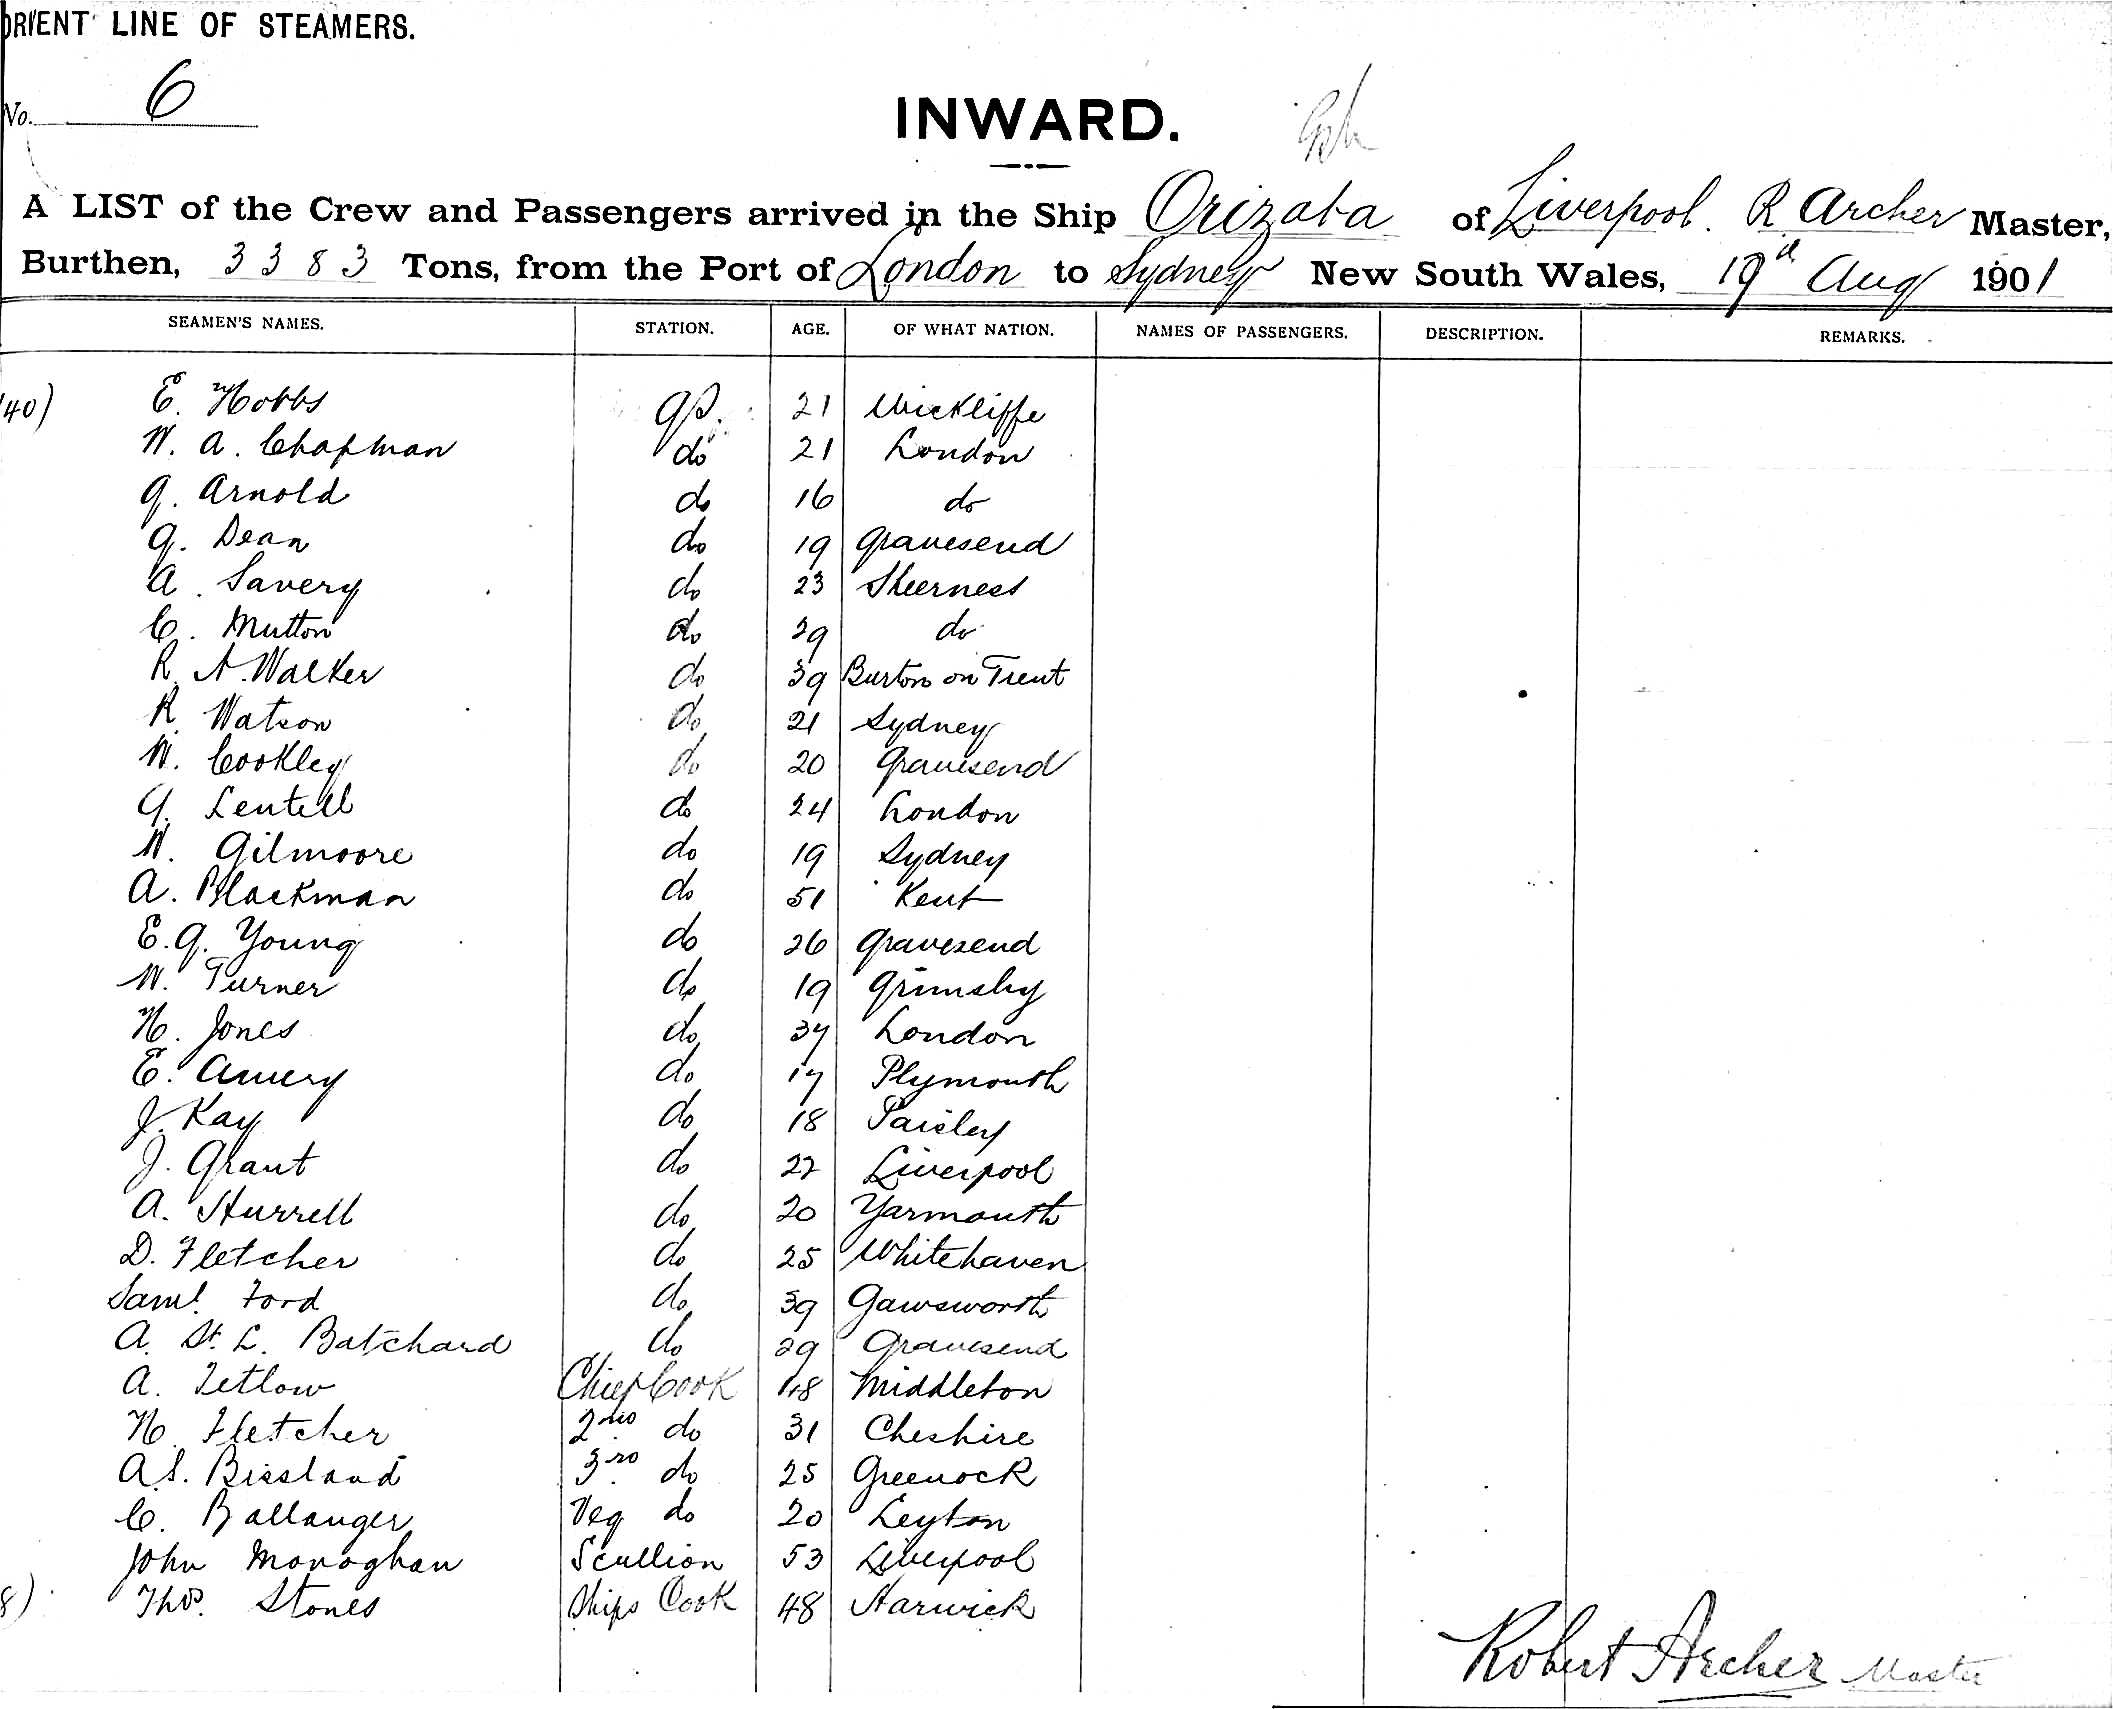 ORIENT LINE OF STEAMERS.
No. 6
INWARD.
A LIST of the Crew and Passengers arrived in the Ship Orizaba of Liverpool. R Archer Master,
Burthen, 3383 Tons, from the Port of London to Sydney New South Wales, 19th Aug 1901
SEAMEN'S NAMES. STATION. AGE. OF WHAT NATION. NAMES OF PASSENGERS. DESCRIPTION. REMARKS.
140) E. Hobbs GS. 21 Wickliffe
W. A. Chapman do 21 London
G. Arnold do 16 do
G. Dean do 19 Gravesend
A. Savery do 23 Sheerness
C. Mutton do 29 do
R. A. Walker do 39 Burton on Trent
R. Watson do 21 Sydney
W. Cookley do 20 Gravesend
G. Lentell do 24 London
W. Gilmoore do 19 Sydney
A. Blackman do 51 Kent
E. G. Young do 26 Gravesend
W. Turner do 19 Grimsby
H. Jones do 37 London
E. Amery do 17 Plymouth
J. Kay do 18 Paisley
J. Grant do 22 Liverpool
A. Hurrell do 20 Yarmouth
D. Fletcher do 25 Whitehaven
Saml. Ford do 39 Gawsworth
A. St. L. Batchard do 29 Gravesend
A. Tetlow Chief Cook 48 Middleton
H. Fletcher 2nd do 31 Cheshire
A.S. Bissland 3rd do 25 Greenock
C. Ballanger Veg do 20 Leyton
John Monoghan Scullion 53 Liverpool
8) Thos. Stones Ships Cook 48 Harwick
Robert Archer Master